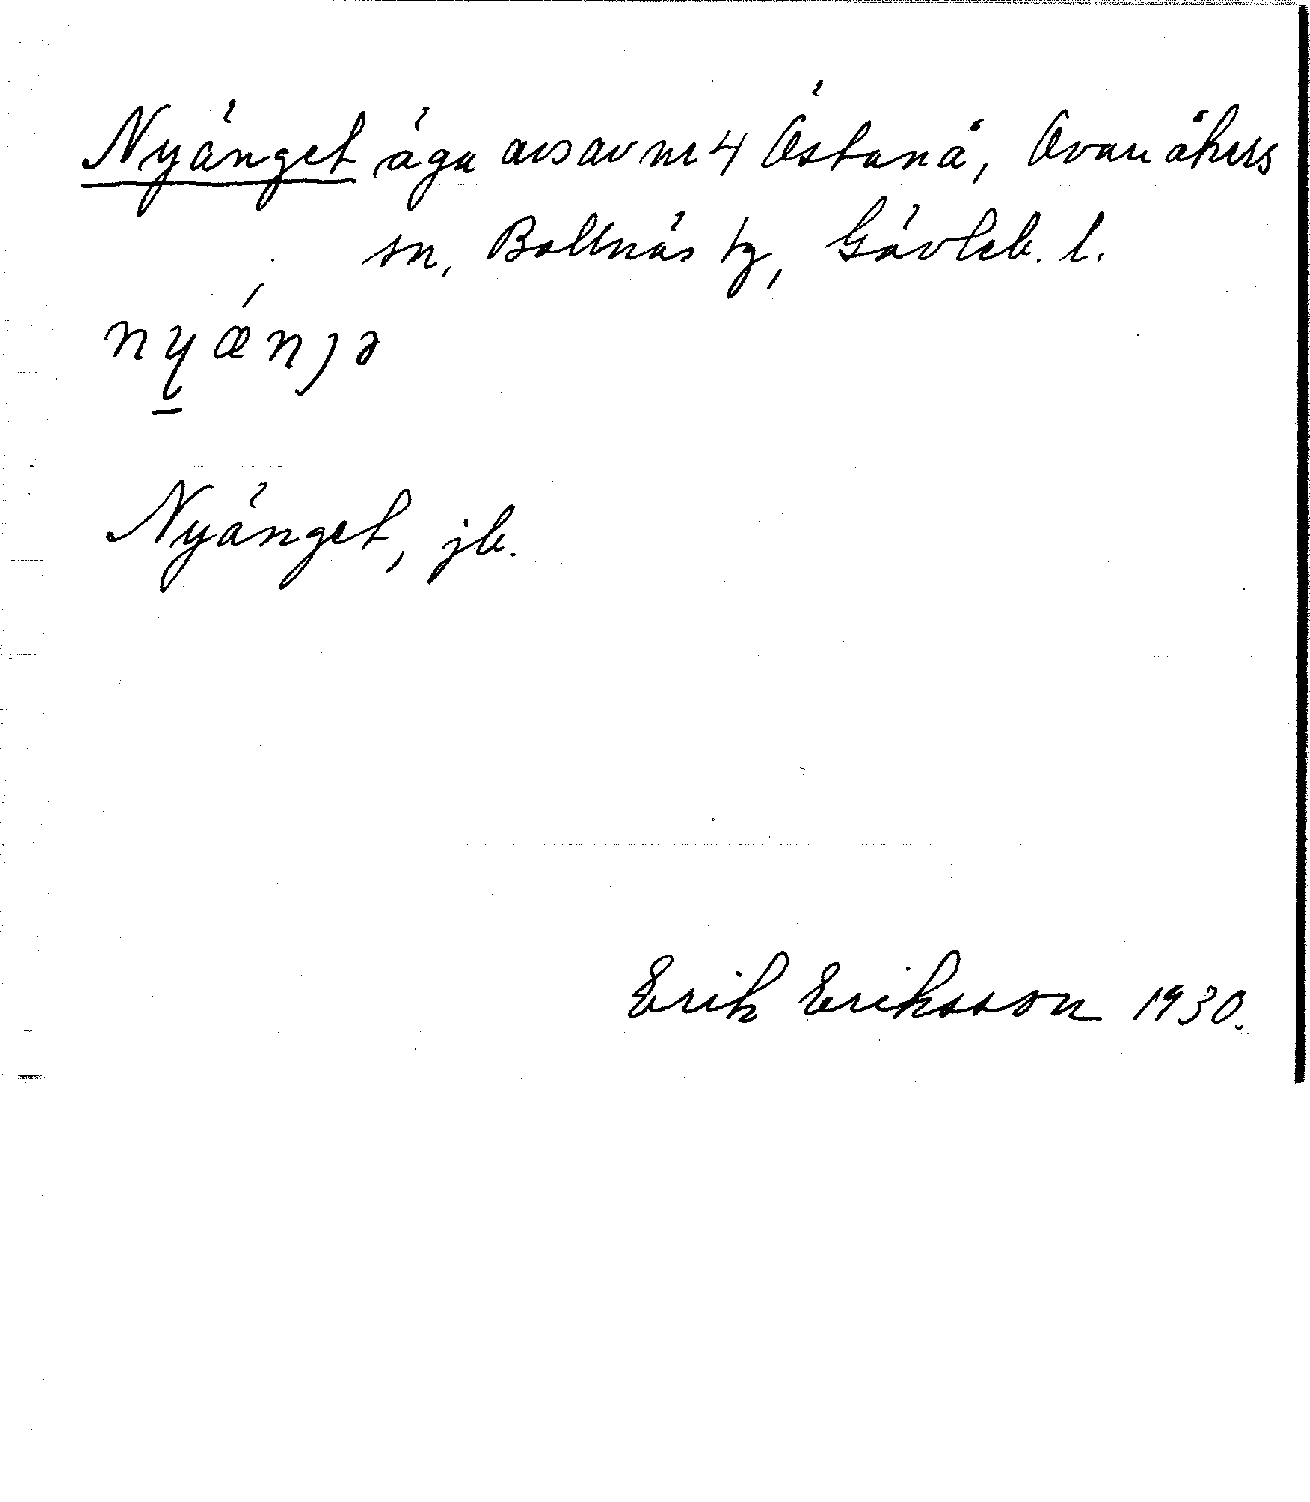 Nyänget äga avs av nr 4 Östanå, Ovanåkers
sn, Bollnäs tg, Gävleb. l.
nyǽnɟə
Nyänget, jb.
Erik Eriksson 1930.